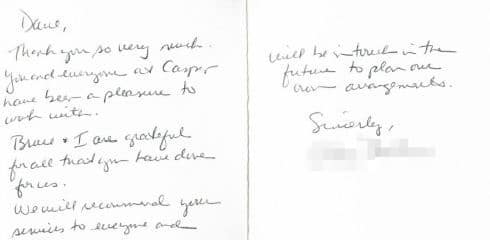 Dave,
Thank you so very much.
You and everyone at Casper
have been a pleasure to
work with.
Bruce & I are grateful
for all that you have done
for us.
We will recommend your
services to everyone and
will be in touch in the
future to plan our
own arrangements.
Sincerely,